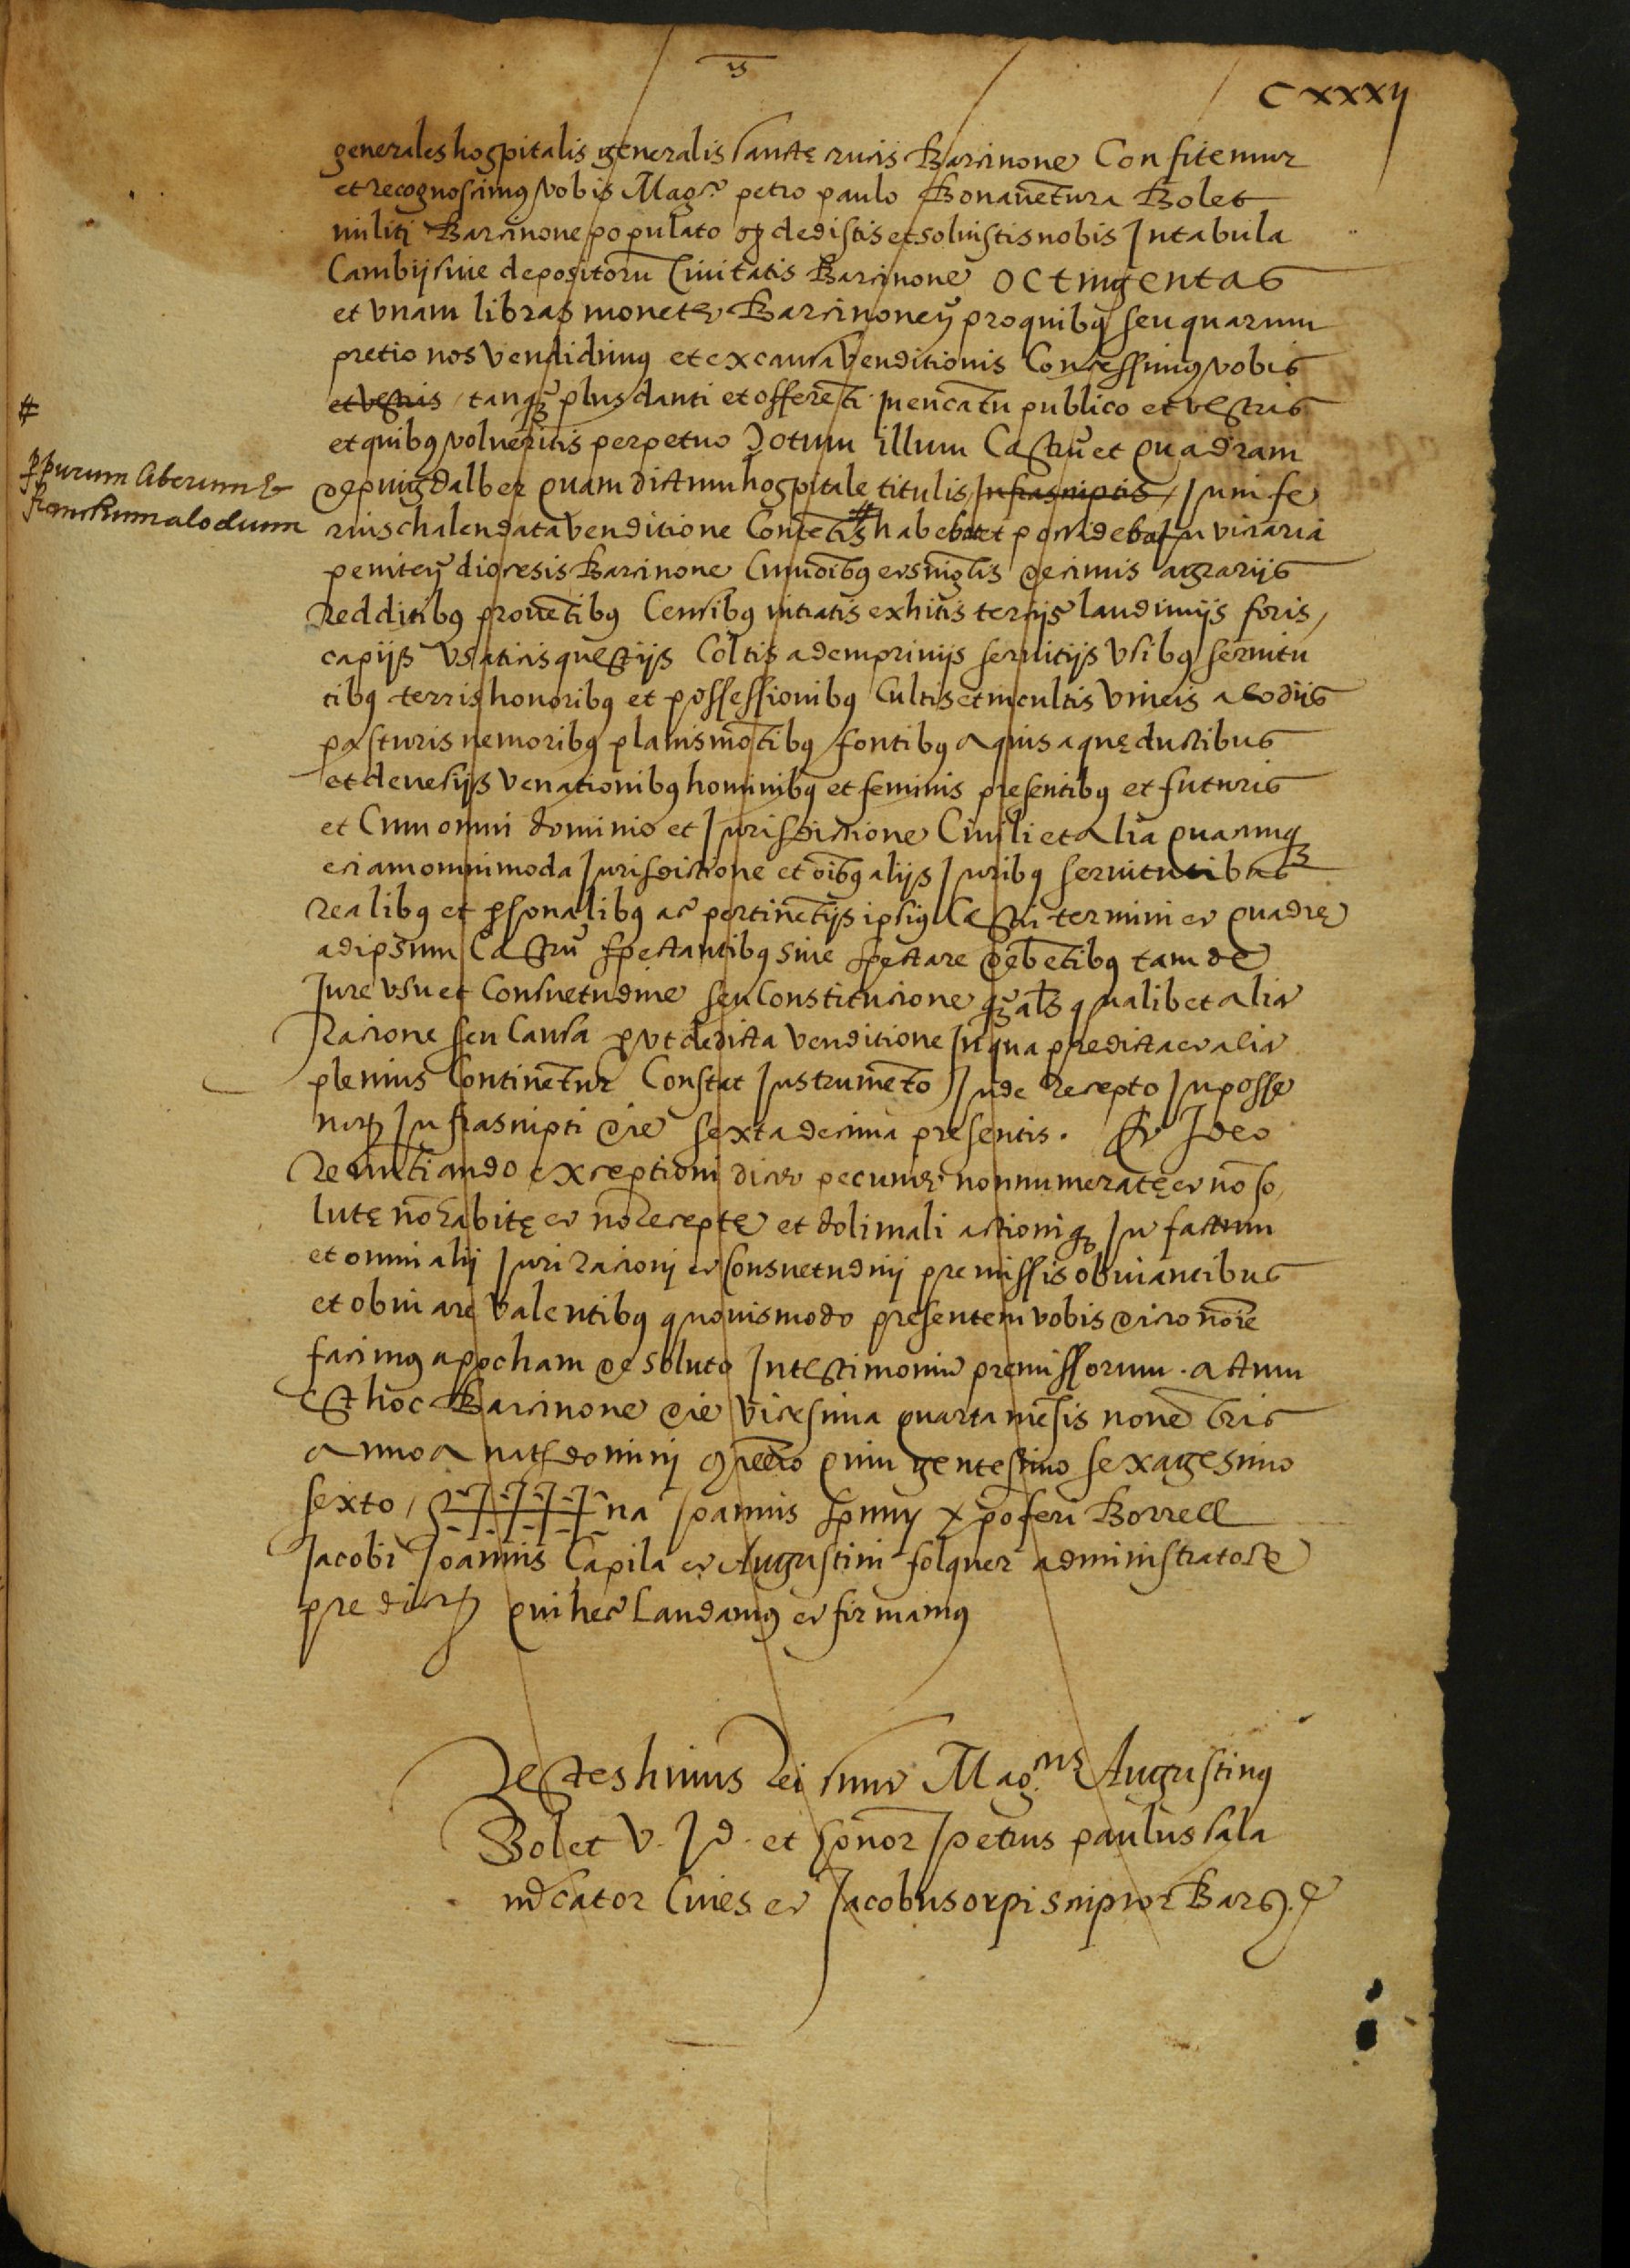 CXXXIJ
generales hospitalis generalis sancte crucis Barcinone Confitemur
et recognoscimus vobis Mag.co petro paulo Bonavētura Bolet
militi Barcinone populato q dedistis et solvistis nobis In tabula
Cambij sive depositorū Civitatis Barcinone Octingentas
et unam libras monete Barcinone proquibus seu quarum
pretio nos vendidimus et ex causa venditionis Concessimus vobis
et vestris tanq̄ plus danti et offerēti In encātu publico et vestris
et quibus volueritis perpetuo Totum illum Castrū et Quadram
de puigdalber Quam dictum hospitale titulis Infrascriptis In infe
#
purum liberum &
franchum alodum
rius chalendata venditione Contētis # habebat et possidebat In vicaria
penitey diocesis Barcinone Cum oībus et singlis decimis agrariis
Redditibus provētibus Censibus intratis exhitis tercijs laudimijs foris
capijs usaticis questijs Coltis ademprivijs servitijs usibus servitu
tibus terris honoribus et possessionibus Cultis et incultis vineis alodijs
pasturis nemoribus planis mōtibus fontibus aquis aquęductibus
et devesijs venationibus hominibus et feminis presentibus et futuris
et Cum omni dominio et Iurisdictione Civili et alia quacumq
eciam omnimoda Iurisdictione et oībus alijs Iuribus servitutibus
realibus et psonalibus ac pertinētijs ipsius Castri termini et quadrę
ad ipsum Castrū spectantibus sive spectare debētibus tam de
Iure usu et Consuetudine seu Constitucione q̄ als qualibet alia
Racione seu Causa put de dicta venditione In qua predicta et alia
plenius Continētur Constat Instrumēto Inde recepto In posse
not Infrascripti die sexta decima presentis. Et Ideo
Renuntiando exceptioni dicte pecunie non numeratę et nō so
lutę nō habitę et nō receptę et doli mali actioniq In factum
et omni alij Iuri Racioni et Consuetudini premissis obviantibus
et obviare valentibus quovismodo presentem vobis dicto nōie
facimus apocham de soluto In testimoniū premissorum. actum
Est hoc Barcinone die vicesima quarta mēsis novēbris
Anno a natē domini Millesimo quingentesimo sexagesimo
sexto, S++++na Ioannis spuny xpoferi Borrell
Iacobi Ioannis Çapila et Augustini folquer administratore
predictorum qui hec Laudamus et firmamus
Testes huius rei sunt Mag.cus Augustinus
Bolet V. J. d. et honor petrus paulus sala
mcator Cives et Iacobus orpi scriptor Barc.e